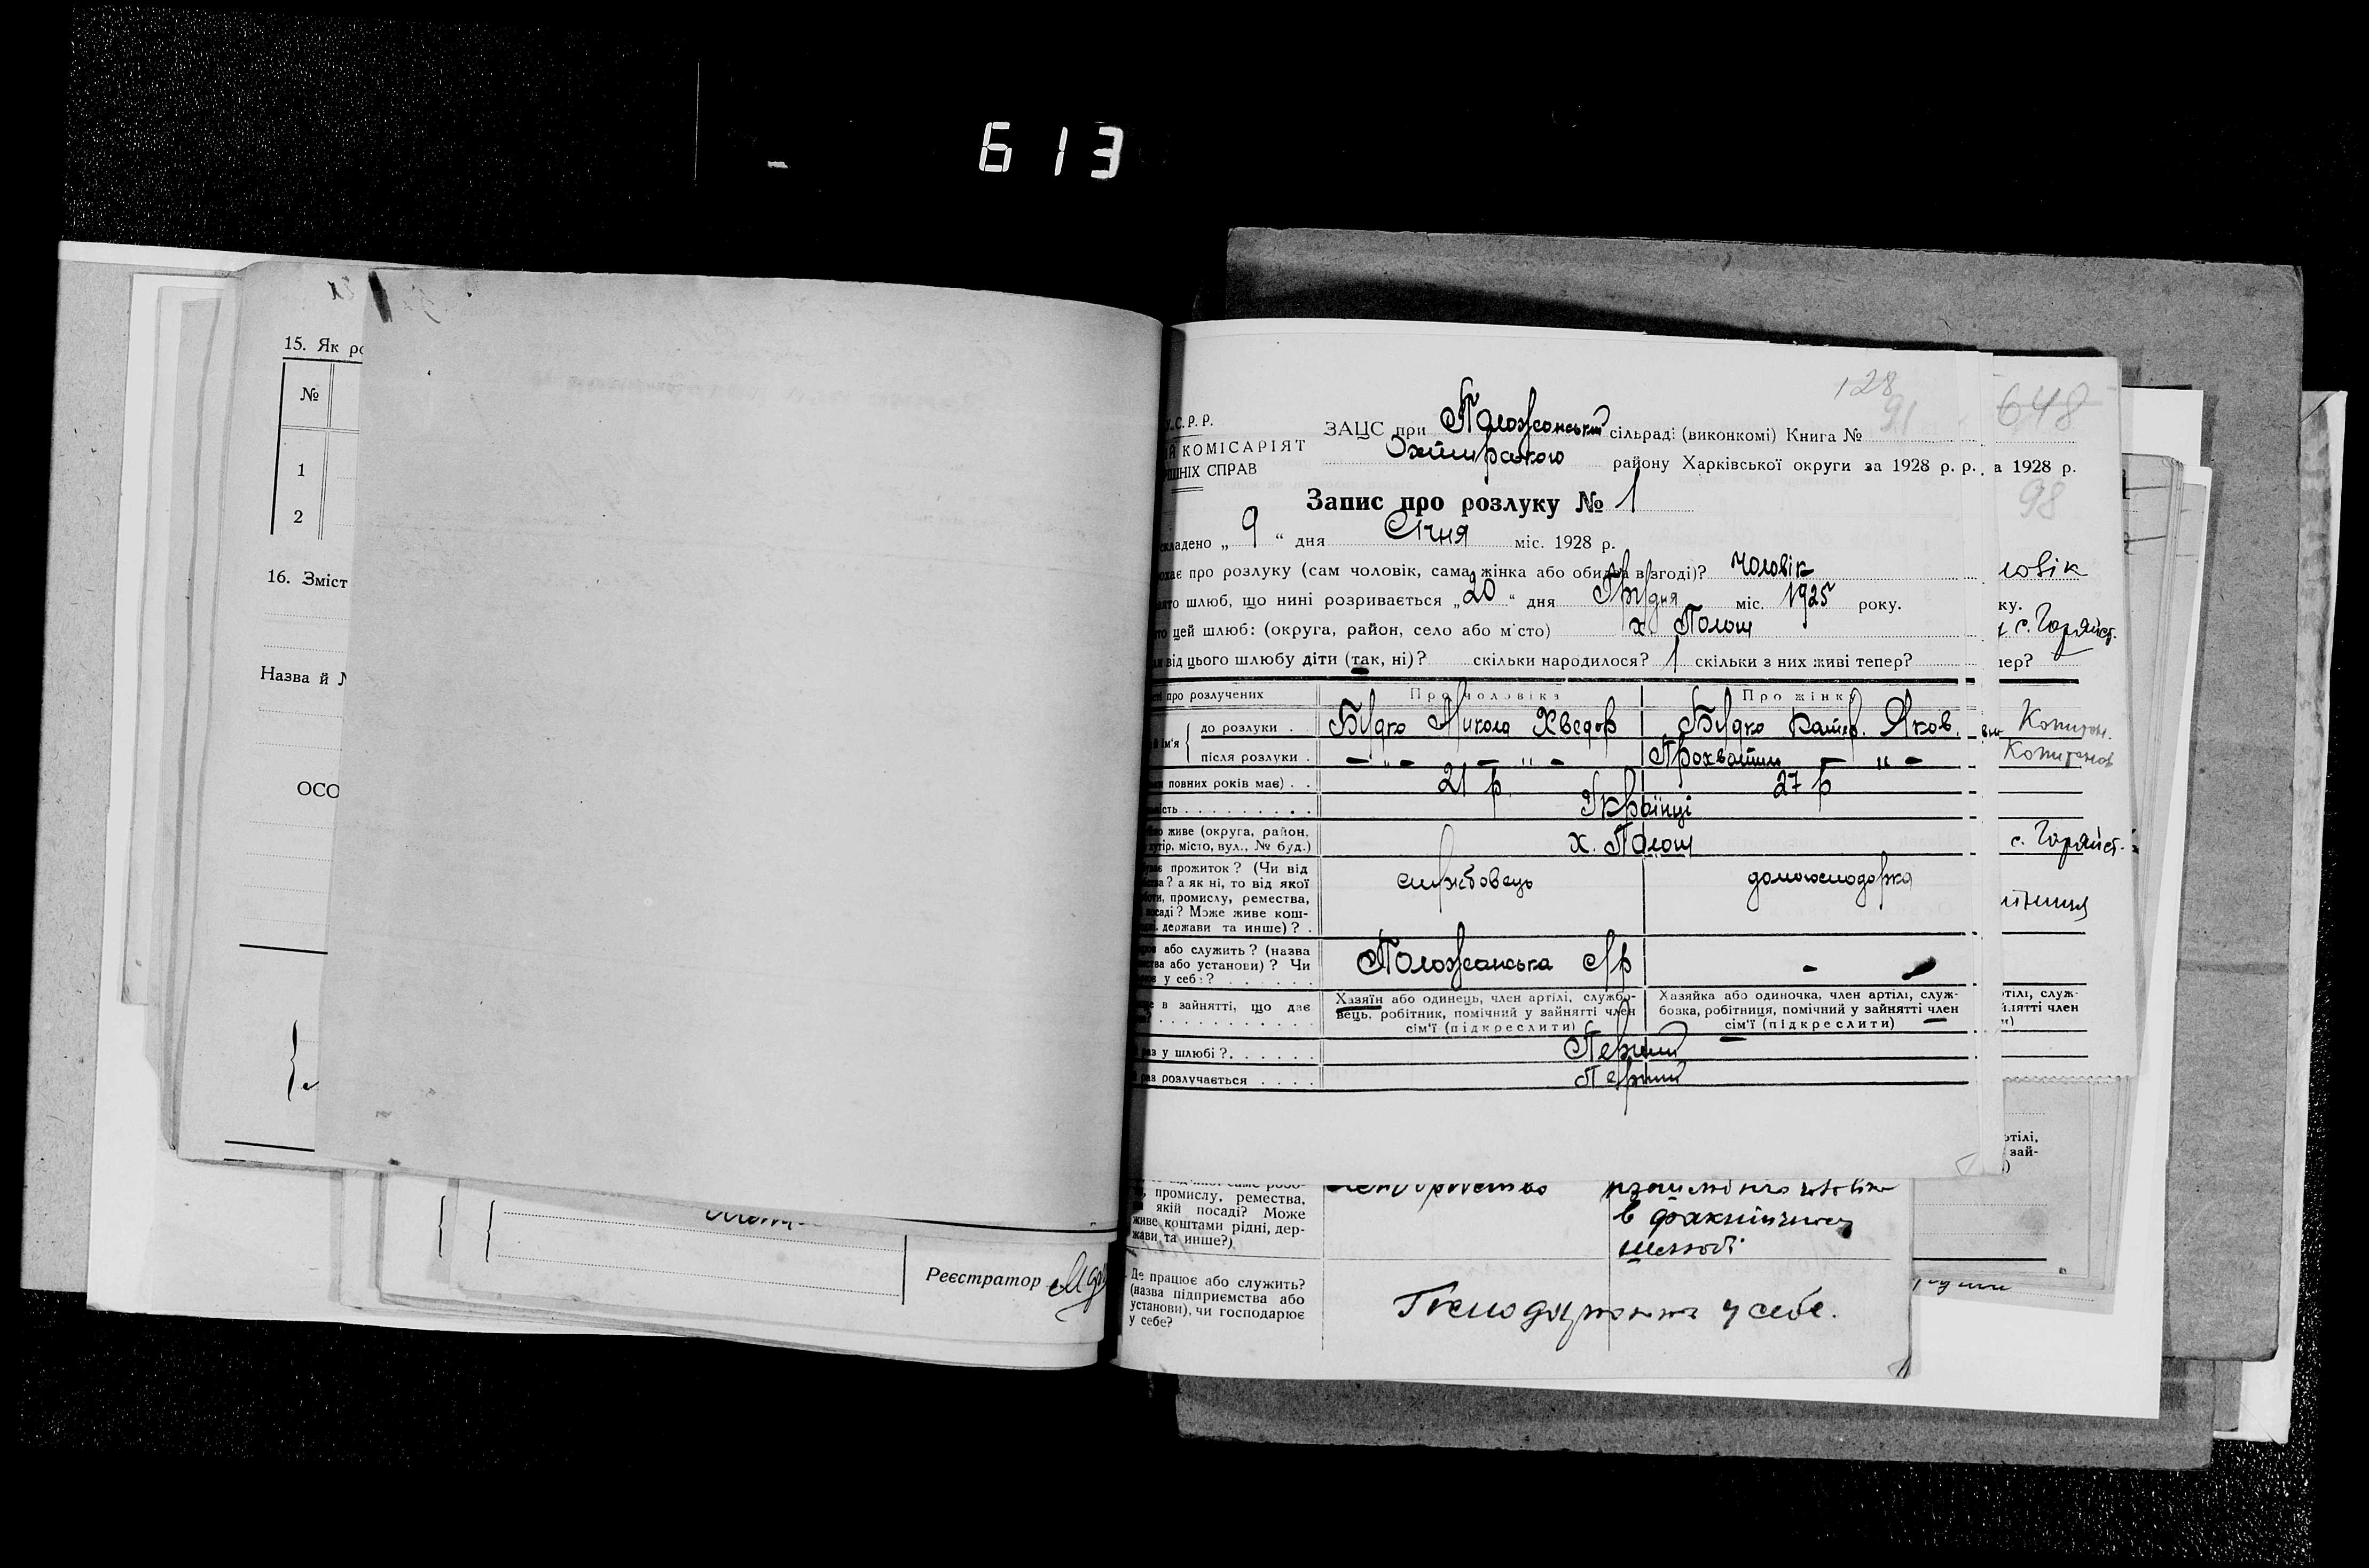 613
15. Як ро
№
1
2
16. Зміст
Назва й №
ОСО
Реєстратор
128
91
У.С.Р.Р.
ИЙ КОМІСАРІЯТ
РІШНІХ СПРАВ
ЗАЦС при Положанський сільраді (виконкомі) Книга №
району Харківської округи за 1928 р. р.
Запис про розлуку № 1
складено „ 9 “ дня Січня міс. 1928 р.
охає про розлуку (сам чоловік, сама жінка або обидва в згоді)? чоловік
ято шлюб, що нині розривається „ 20 “ дня Грудня міс. 1925 року.
то цей шлюб: (округа, район, село або місто) х. Полош
ли від цього шлюбу діти (так, ні)? скільки народилося? 1 скільки з них живі тепер?
сті про розлучених Про чоловіка Про жінку
й ім'я { до розлуки . Будко Микола Хведор Будко Катер. Яков.
після розлуки . — „ — — „ — — „ —
повних років має) . . 21 р. 27 р
ність . . . . Українці
но живе (округа, район,
хутір, місто, вул., № буд.) х. Полош
ває прожиток? (Чи від
ства? а як ні, то від якої
боти, промислу, ремества,
посаді? Може живе кош-
держави та инше)? .
службовець домогосподарка
цює або служить? (назва
ства або установи)? Чи
рює у себе? Положанська с/р -
ще в зайнятті, що дає
Хазяїн або одинець, член артілі, службо-
вець, робітник, помічний у зайнятті член
сім'ї (підкреслити)
Хазяйка або одиночка, член артілі, служ-
бовка, робітниця, помічний у зайнятті член
сім'ї (підкреслити)
раз у шлюбі?. . . . . . Перший
раз розлучається . . . . Перший
648
а 1928 р.
98
ловік
ку.
с. Горяйст.
пер?
с. Горяйст.
ртілі, служ-
йнятті член
ртілі,
зай-
промислу, ремества,
якій посаді? Може
живе коштами рідні, дер-
жави та инше?)
в фактичному
шлюбі
Де працює або служить?
(назва підприємства або
установи), чи господарює
у себе?
у себе.